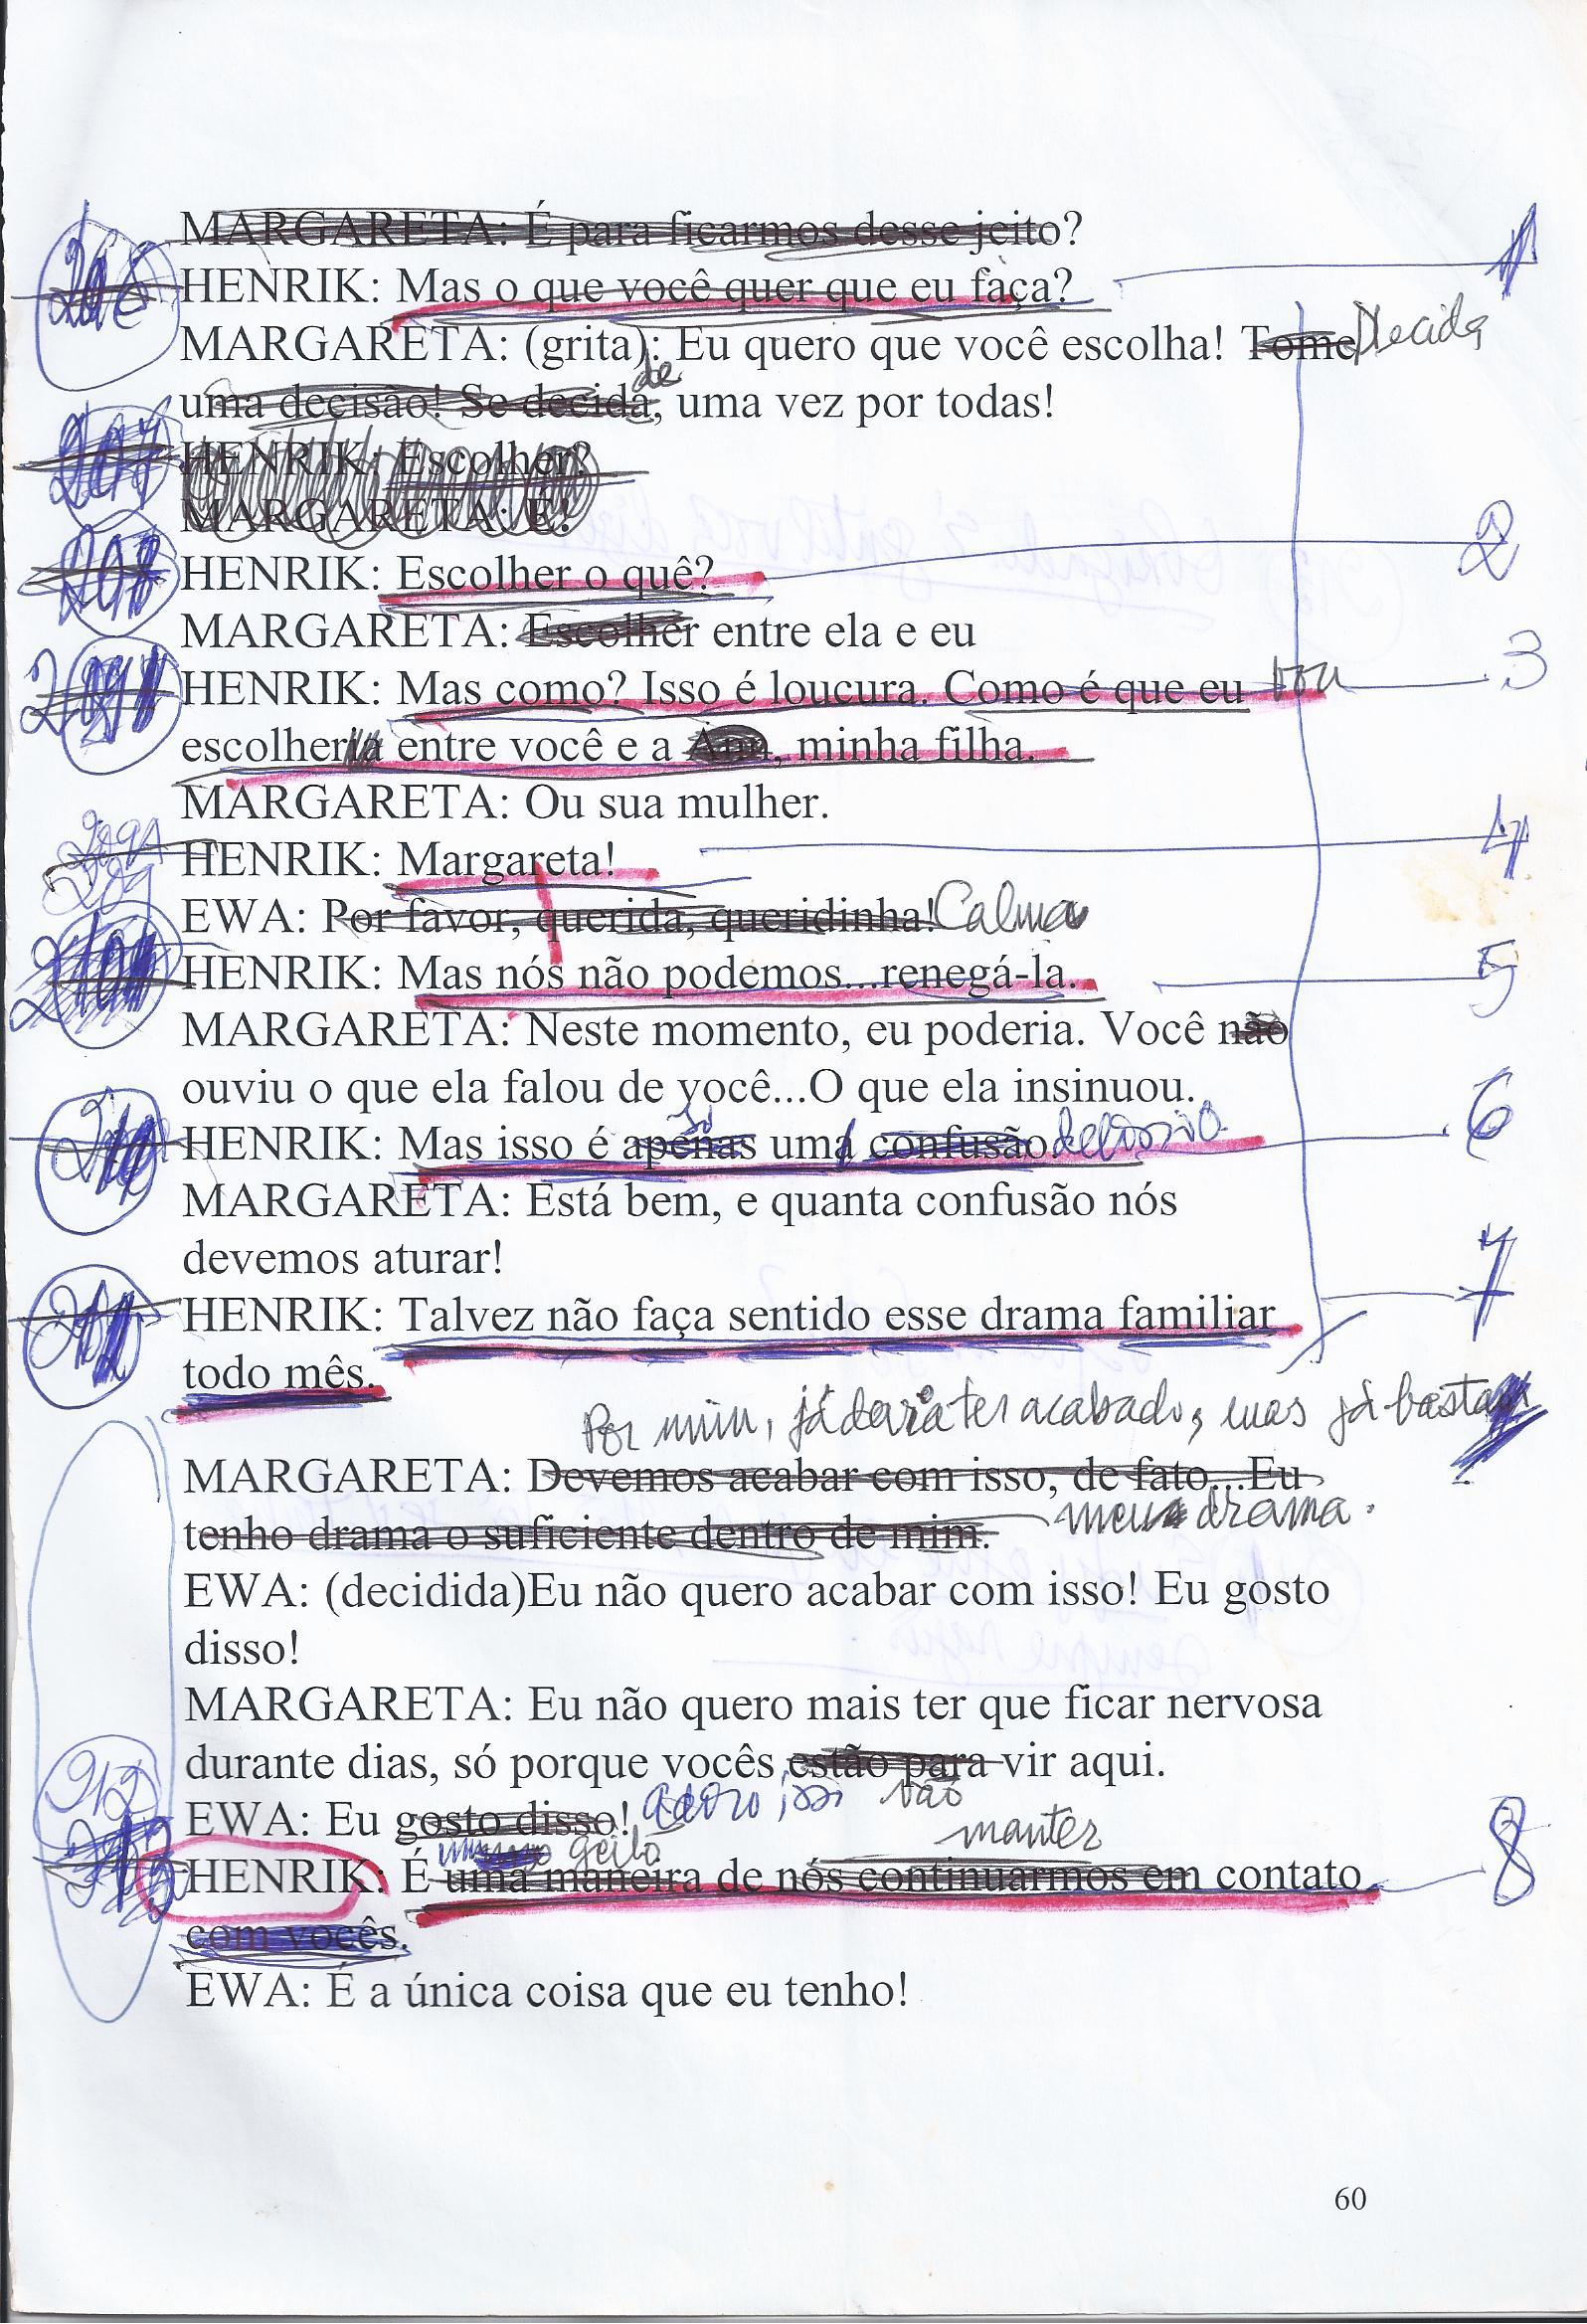 MARGARETA: É para ficarmos desse jeito?
HENRIK: Mas o que você quer que eu faça? 1
MARGARETA: (grita): Eu quero que você escolha! Tome Decida
uma decisão! Se decida, de uma vez por todas!
207 HENRIK: Escolher?
MARGARETA: É!
208 HENRIK: Escolher o quê? 2
MARGARETA: Escolher entre ela e eu
HENRIK: Mas como? Isso é loucura. Como é que eu vou 3
escolheria entre você e a Ann, minha filha.
MARGARETA: Ou sua mulher.
209 HENRIK: Margareta! 4
EWA: Por favor, querida, queridinha! Calma
HENRIK: Mas nós não podemos...renegá-la. 5
MARGARETA: Neste momento, eu poderia. Você não
ouviu o que ela falou de você...O que ela insinuou.
só
HENRIK: Mas isso é apenas uma confusão. 6
MARGARETA: Está bem, e quanta confusão nós
devemos aturar!
HENRIK: Talvez não faça sentido esse drama familiar 7
todo mês.
Por mim, já devia ter acabado, mas já basta
MARGARETA: Devemos acabar com isso, de fato...Eu
tenho drama o suficiente dentro de mim. meu drama.
EWA: (decidida)Eu não quero acabar com isso! Eu gosto
disso!
MARGARETA: Eu não quero mais ter que ficar nervosa
durante dias, só porque vocês estão para vir aqui.
212 EWA: Eu gosto disso! adoro isso vão
geito manter
HENRIK: É uma maneira de nós continuarmos em contato 8
com vocês.
EWA: É a única coisa que eu tenho!
60